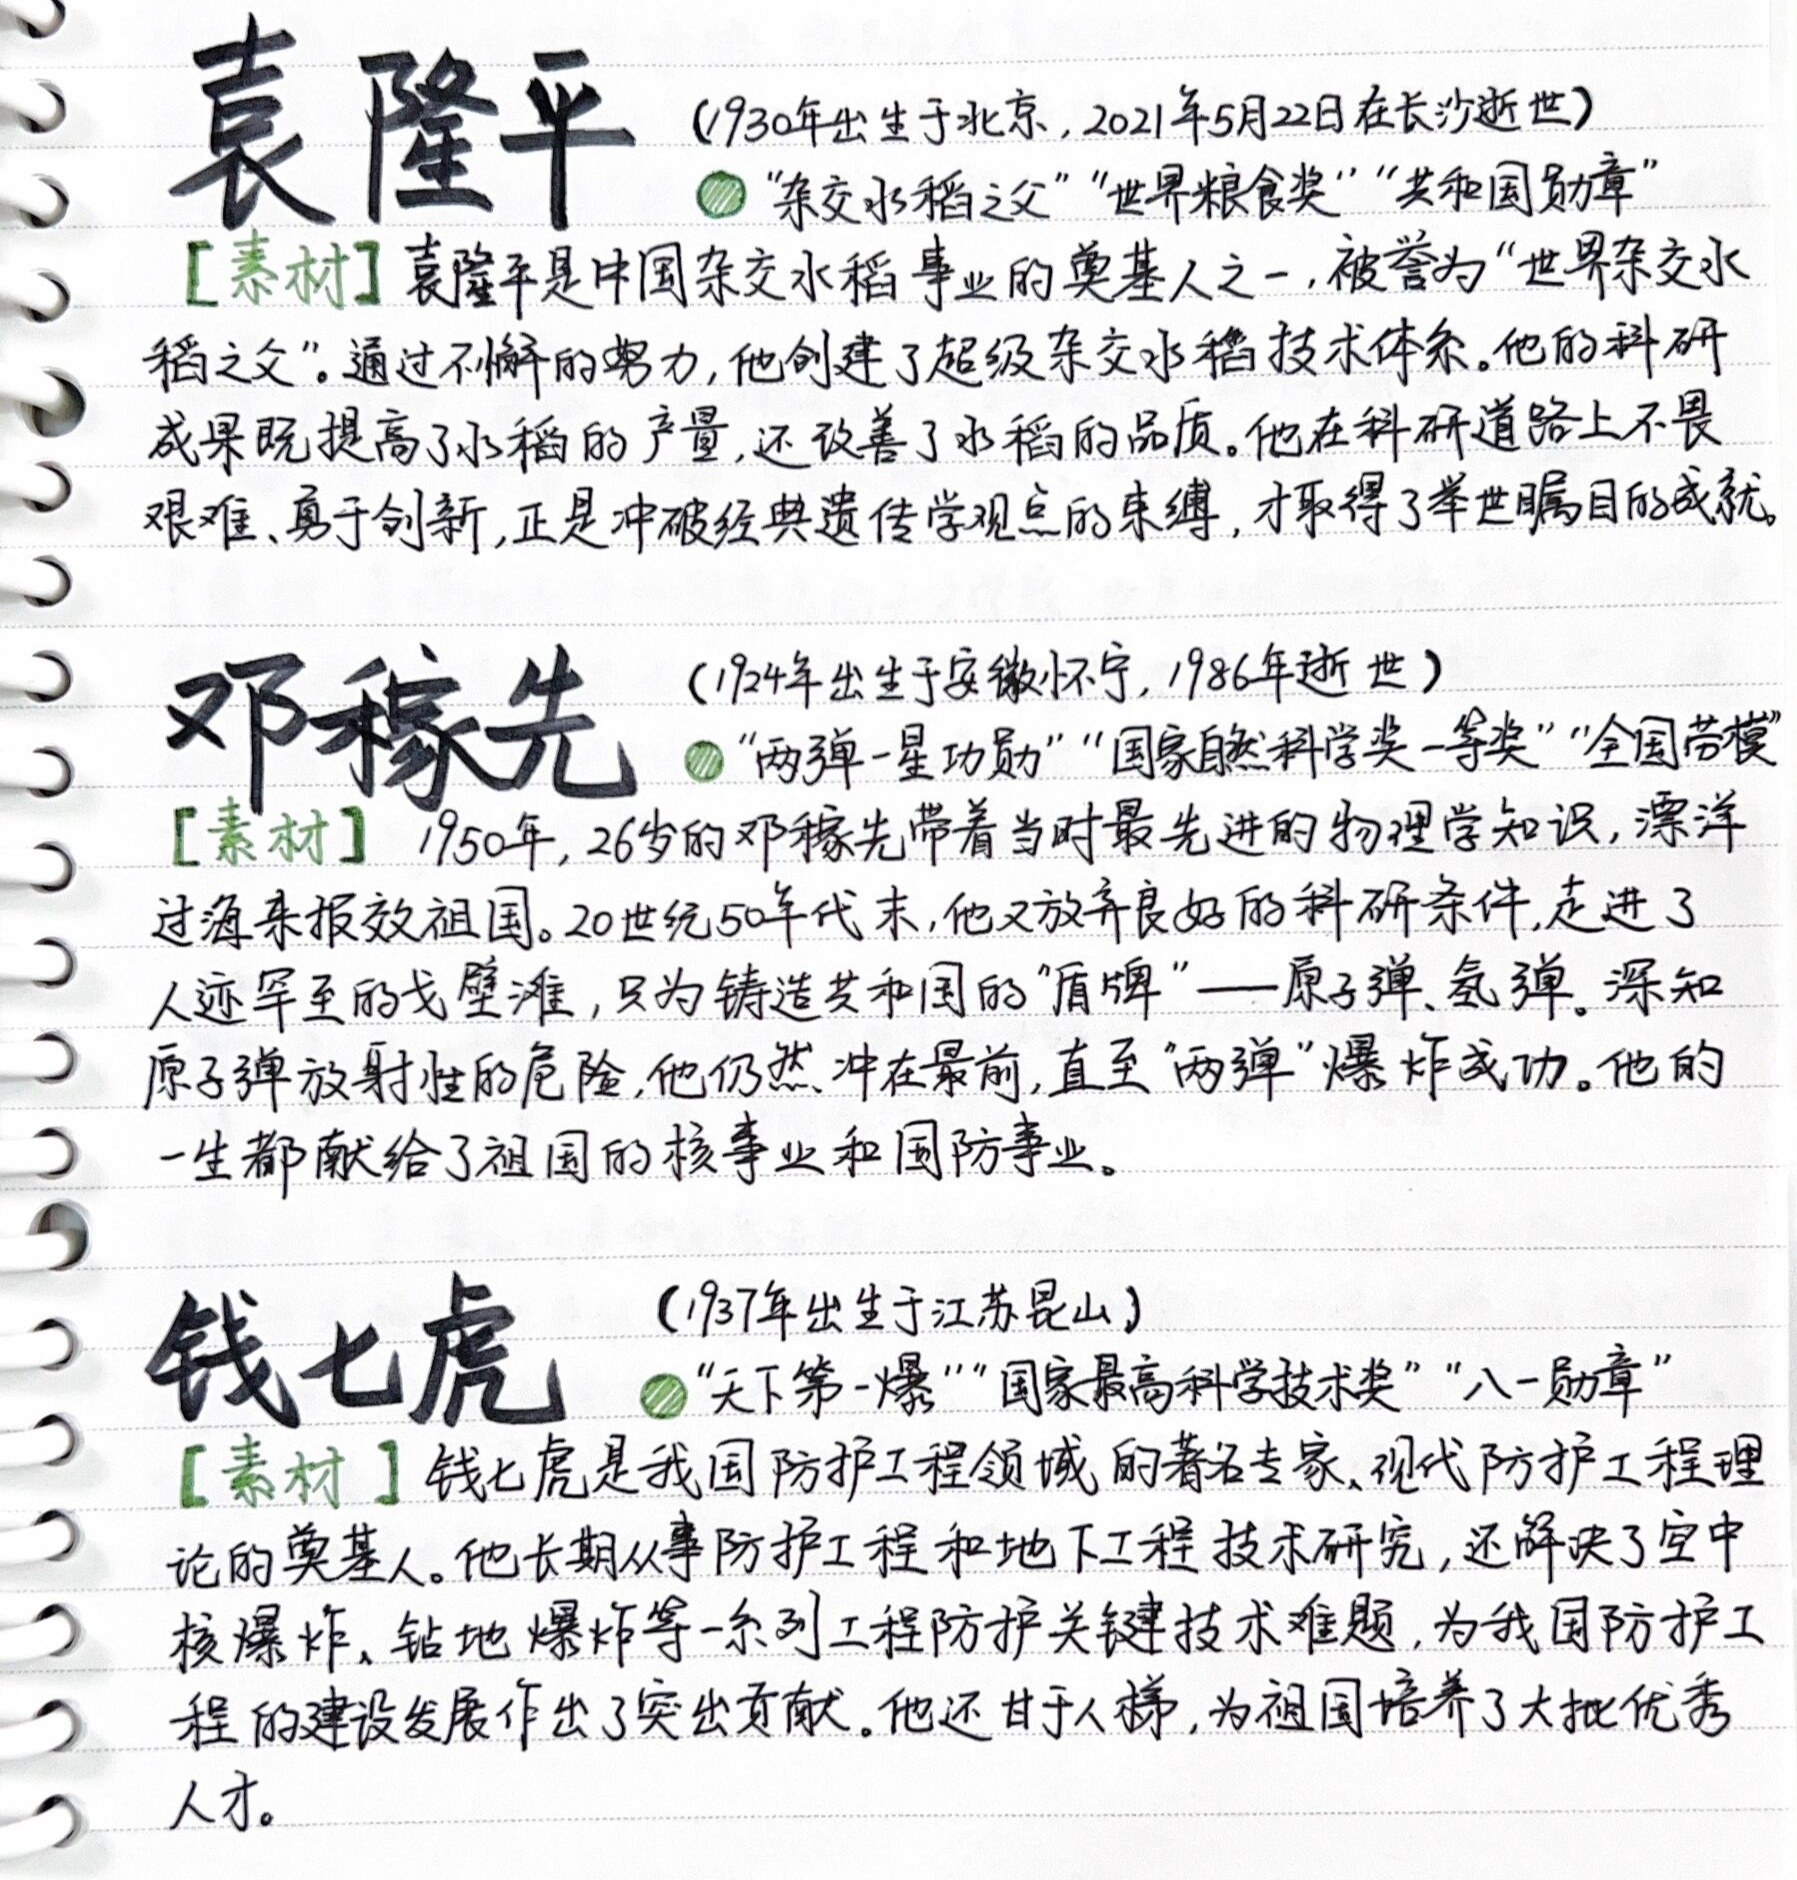 袁隆平 (1930年出生于北京，2021年5月22日在长沙逝世)
“杂交水稻之父”“世界粮食奖”“共和国勋章”
[素材] 袁隆平是中国杂交水稻事业的奠基人之一，被誉为“世界杂交水
稻之父”。通过不懈的努力，他创建了超级杂交水稻技术体系。他的科研
成果既提高了水稻的产量，还改善了水稻的品质。他在科研道路上不畏
艰难、勇于创新，正是冲破经典遗传学观点的束缚，才取得了举世瞩目的成就。
邓稼先 (1924年出生于安徽怀宁，1986年逝世)
“两弹一星功勋”“国家自然科学奖一等奖”“全国劳模”
[素材] 1950年，26岁的邓稼先带着当时最先进的物理学知识，漂洋
过海来报效祖国。20世纪50年代末，他又放弃良好的科研条件，走进了
人迹罕至的戈壁滩，只为铸造共和国的“盾牌”——原子弹、氢弹。深知
原子弹放射性的危险，他仍然冲在最前，直至“两弹”爆炸成功。他的
一生都献给了祖国的核事业和国防事业。
钱七虎 (1937年出生于江苏昆山)
“天下第一爆”“国家最高科学技术奖”“八一勋章”
[素材] 钱七虎是我国防护工程领域的著名专家、现代防护工程理
论的奠基人。他长期从事防护工程和地下工程技术研究，还解决了空中
核爆炸、钻地爆炸等一系列工程防护关键技术难题，为我国防护工
程的建设发展作出了突出贡献。他还甘于人梯，为祖国培养了大批优秀
人才。